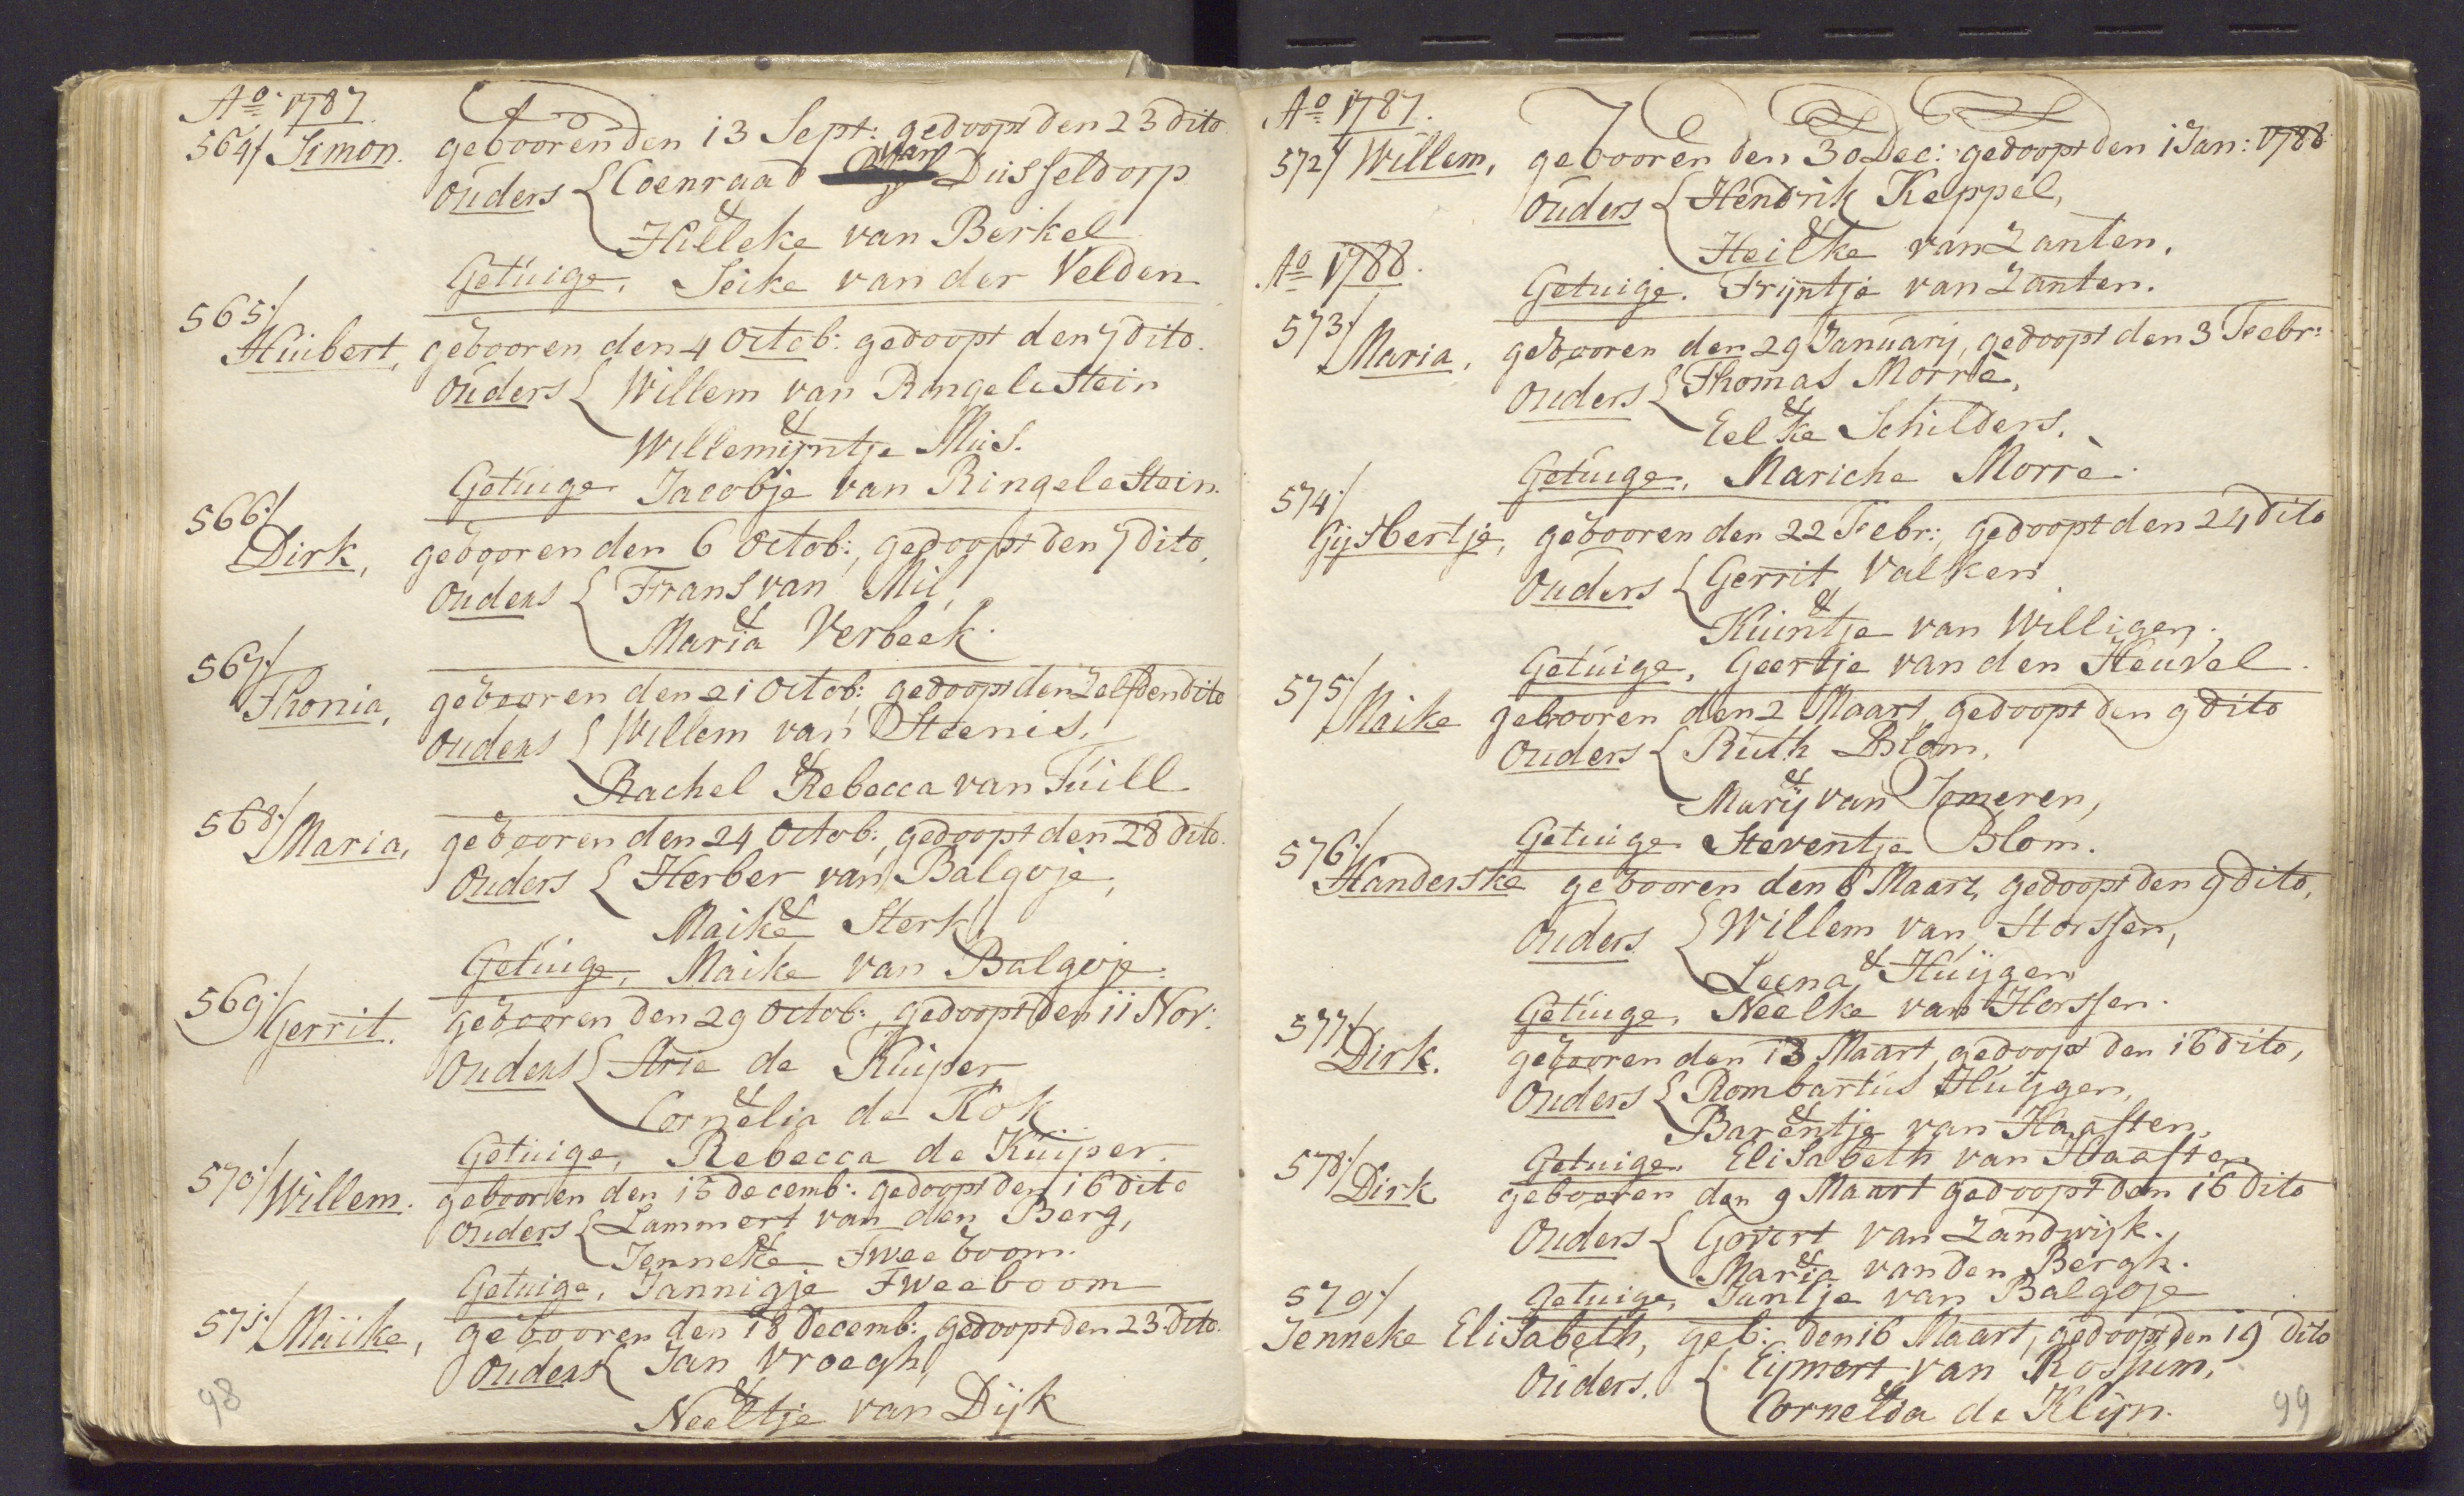 Ao 1787.
564/ Simon. gebooren den 13 Sept: gedoopt den 23 dito
Ouders { Coenraad van Dusseldorp
&
Hilleke van Berkel
Getuige. Seike van der Velden
565:/
Huibert, gebooren den 4 Octob: gedoopt den 7 dito.
Ouders { Willem van Ringelestein
&
Willemijntje Muis.
Getuige Jacobje van Ringelestein.
566:/
Dirk, gebooren den 6 Octob:, gedoopt den 7 dito.
Ouders { Frans van Mil,
&
Maria Verbeek.
567:/
Thonia, gebooren den 21 Octob: gedoopt den Zelfden dito
Ouders { Willem van Steenis,
&
Rachel Rebecca van Tuill
568:/ Maria, gebooren den 24 Octob:, gedoopt den 28 dito.
Ouders { Herber van Balgoje,
&
Maike Sterk
Getuige, Maike van Balgoje.
569:/ Gerrit. gebooren den 29 Octob:, gedoopt den 11 Nov:
Ouders { Arie de Kuiper
&
Cornelia de Kok
Getuige, Rebecca de Kuijper.
570:/ Willem. gebooren den 15 decemb: gedoopt den 16 dito
Ouders { Lammert van den Berg,
&
Jenneke Tweeboom.
Getuige, Jannigje Tweeboom
571:/ Maiike, gebooren den 18 Decemb:, gedoopt den 23 dito.
Ouders { Jan Vroegh
&
Neeltje van Dijk
98
Ao 1787.
572/ Willem, gebooren den 30 Dec: gedoopt den 1 Jan: 1788
Ouders { Hendrik Keppel,
&
Heilke van Zanten.
Ao 1788.
Getuige. Trijntje van Zanten.
573:/
Maria, gebooren den 29 January, gedoopt den 3 Febr:
Ouders { Thomas Morrè,
&
Eelke Schilders.
Getuige, Mariche Morrè.
574:/
Gijsbertje, gebooren den 22 Febr:, gedoopt den 24 dito
Ouders { Gerrit Valken
&
Kuintje van Willigen.
Getuige, Geertje van den Heuvel.
575:/ Maike gebooren den 2 Maart, gedoopt den 9 dito
Ouders { Ruth Blom,
&
Marij van Someren,
Getuige Steventje Blom.
576:/
Handerske gebooren den 6 Maart, gedoopt den 9 dito,
Ouders { Willem van Horssen,
&
Leena Huijgen
Getuige, Neelke van Horssen.
577:/ Dirk. gebooren den 13 Maart, gedoopt den 16 dito,
Ouders { Rombartus Huijgen,
&
Barentje van Haaften,
Getuige. Elisabeth van Haaften
578:/ Dirk gebooren den 9 Maart gedoopt den 16 dito
Ouders { Govert van Zandwijk.
&
Maria van den Bergh.
Getuige, Jantje van Balgoje
579:/
Jenneke Elisabeth, geb: den 16 Maart, gedoopt den 19 dito
Ouders. { Eijmert van Rossum,
&
Cornelia de Klijn.
99